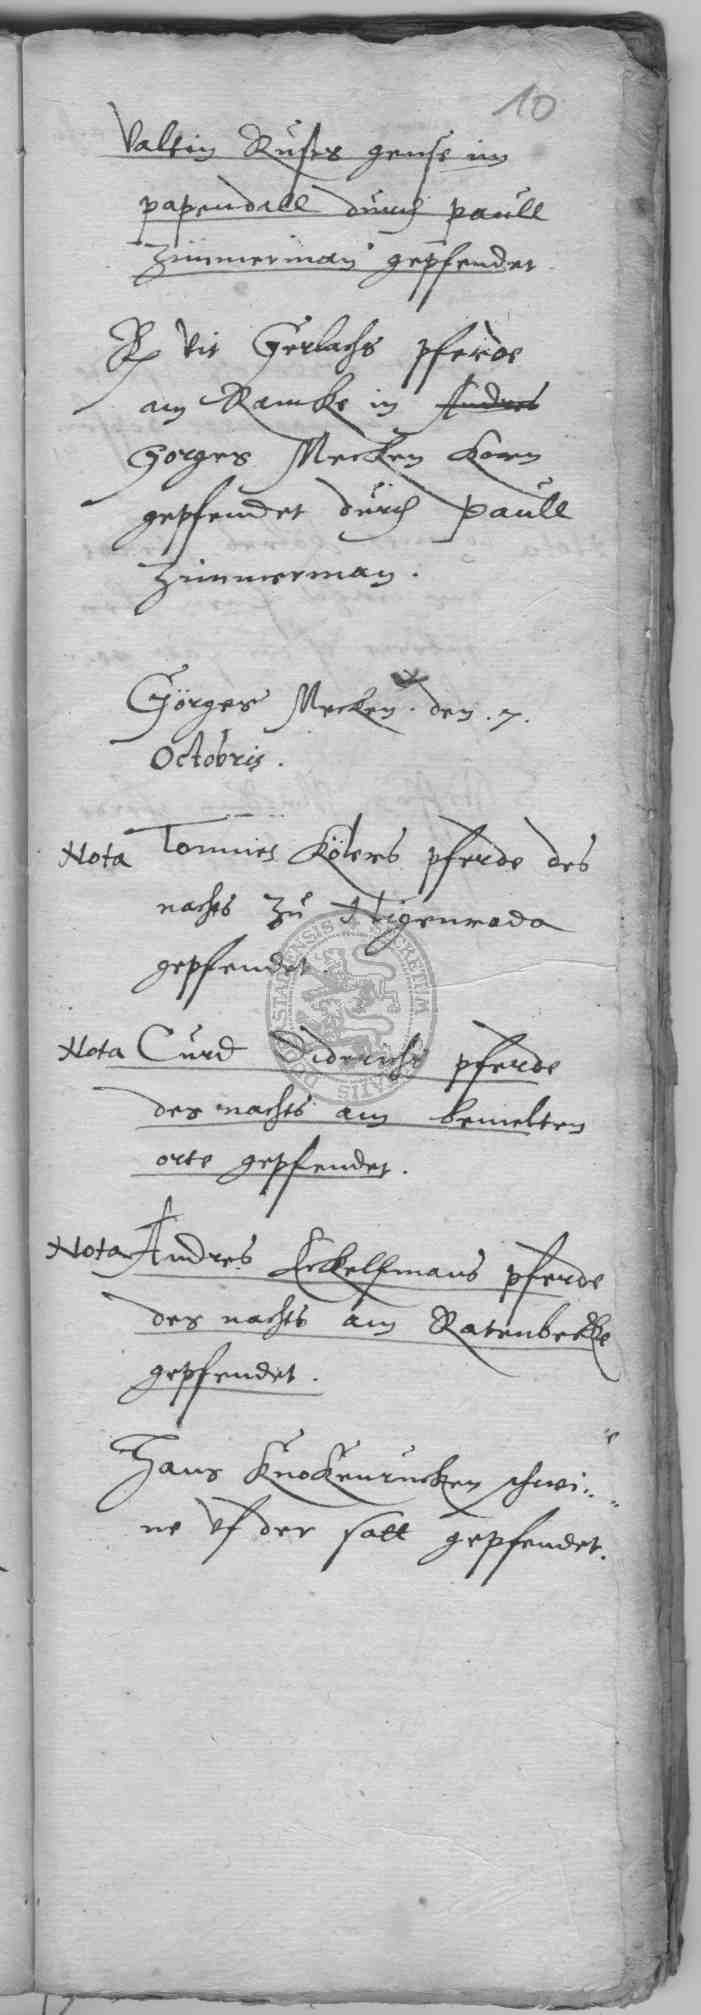 10
Valtin Ruses gense im
papendall durch paull
Zimmerman gepfendet
Vit Gerlachs pferde
am Ramke in Andres
Gorges Mecken Korn
gepfendet durch paull
Zimmerman.
Görges Mecken. den. 7.
Octobris.
Nota Tonnies Kölers pferde des
nachts zu Higenroda
gepfendet.
Nota Curd Diderichs pferde
des nachts am bemelten
orte gepfendet.
Nota Andres Eckelsmans pferde
des nachts am Ratenbecke
gepfendet.
Hans Knokenrucken schwi-
ne uf der satt gepfendet.